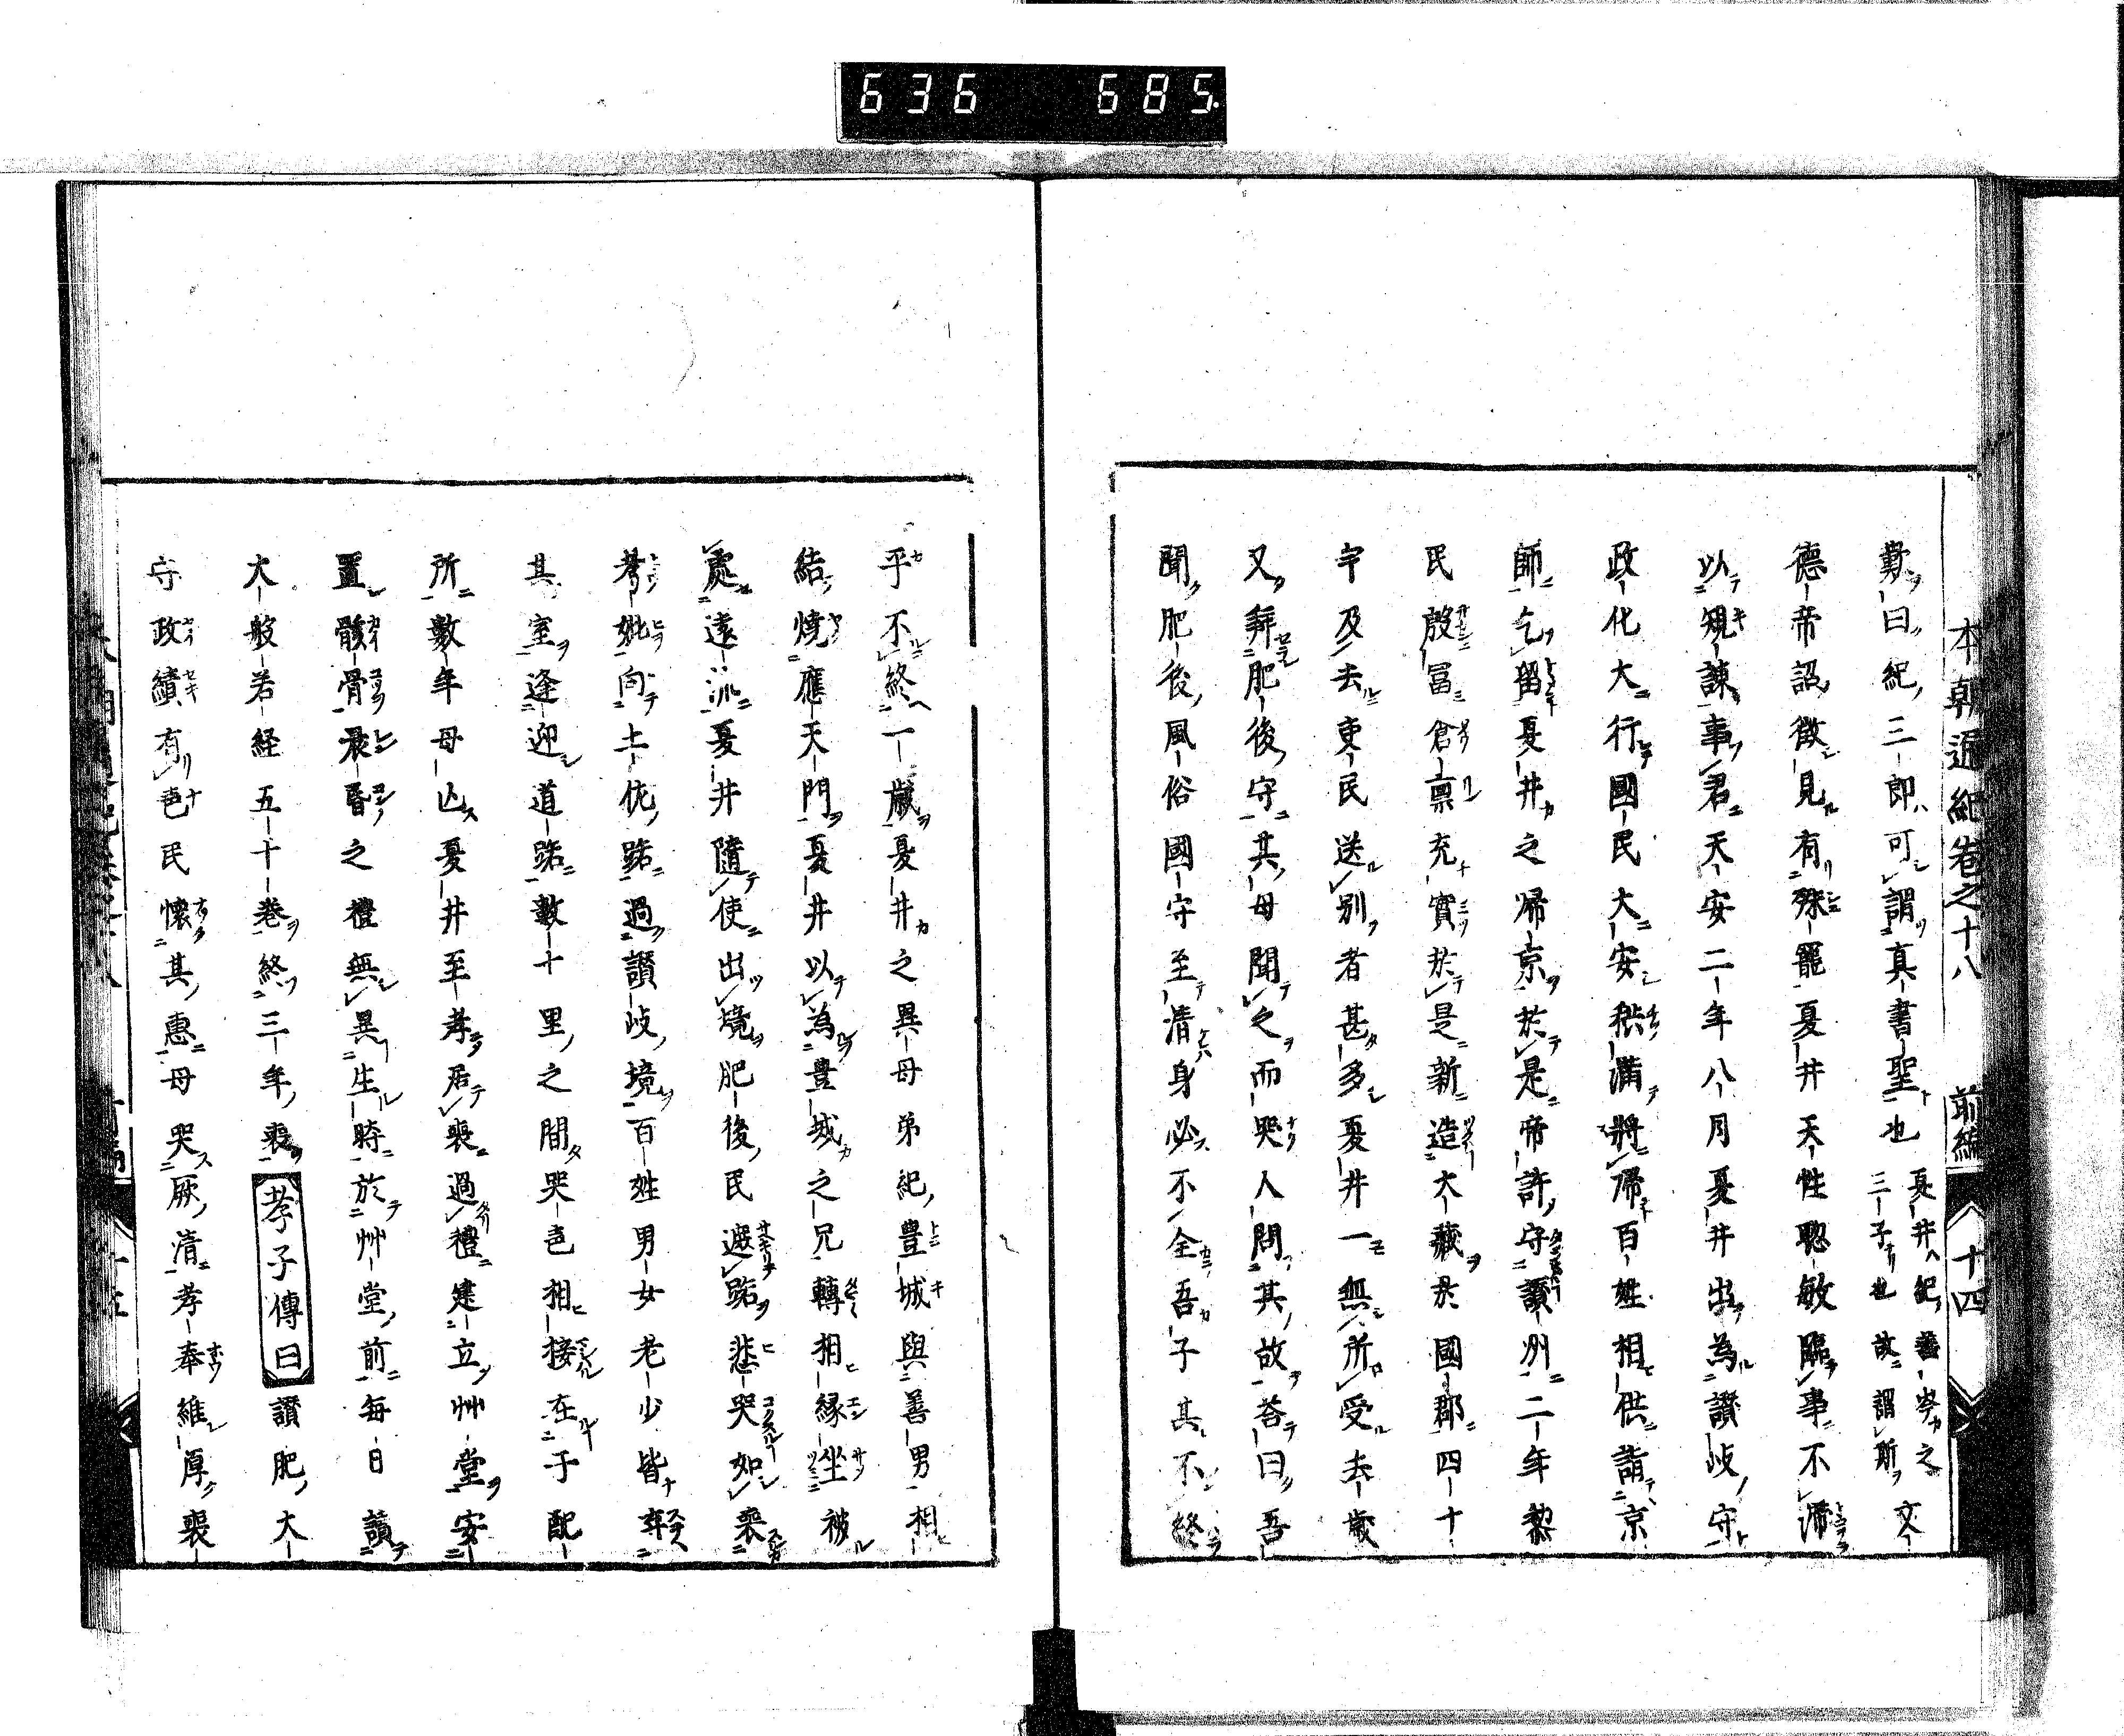 636 685
本朝逅紀卷之十八 前編 十四
歎曰紀三郎可謂真書聖也 夏井紀善岑之三子也故謂斯 文
德帝詔徵見有殊寵夏井天性聰敏臨事不滯
以規諫事君天安二年八月夏井出為讃岐守
政化大行國民大安秩滿將帰百姓相供詣京
師乞留夏井之帰京於是帝許守讃州二年黎
民殷冨倉禀充實於是新造大藏於國郡四十
宇及去吏民送別者甚多夏井一無所受去歲
又拜肥後守其母聞之而哭人問其故荅曰吾
聞肥後風俗國守至清身必不全吾子其不終
乎不終一歲夏井之異母弟紀豊城與善男相
結燒應天門夏井以為豊城之兄轉相縁坐被
處遠流夏井隨使出境肥後民遮路悲哭如喪
考妣向土佐路過讃岐境百姓男女老少皆弃
其室逢迎道路數十里之間哭㐌相接在于配
所數年母亾夏井至孝居喪過禮建立艸堂安
置骸骨晨昏之禮無異生時於艸堂前每日讀
大般若経五十卷終三年喪 孝子傳曰 讃肥大
守政績有㐌民懷其惠母哭厥清孝奉維厚喪